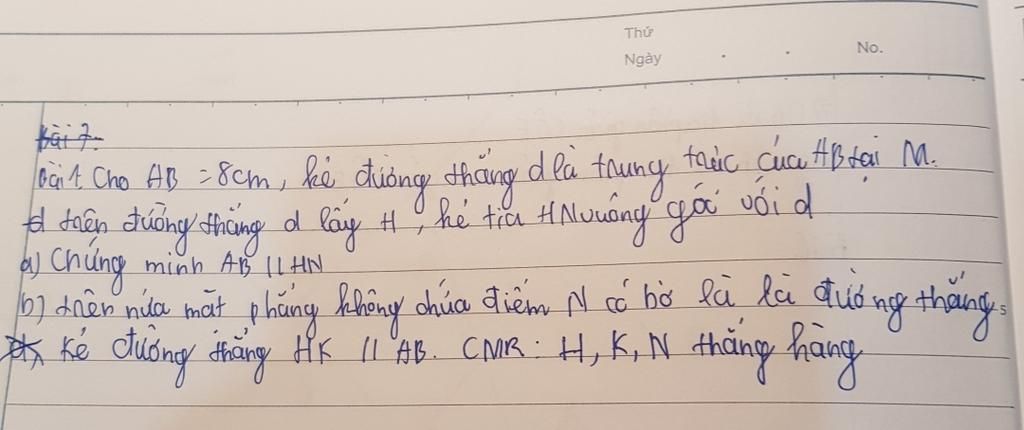 Thứ
Ngày . . No.
Bài 7.
Bài 1. Cho AB = 8cm, kẻ đường thẳng d là trung trực của AB tại M.
d trên đường thẳng d lấy H, kẻ tia HN vuông góc với d
a) Chứng minh AB // HN
b) trên nửa mặt phẳng không chứa điểm N có bờ là là đường thẳng
kẻ đường thẳng HK // AB. CMR: H, K, N thẳng hàng